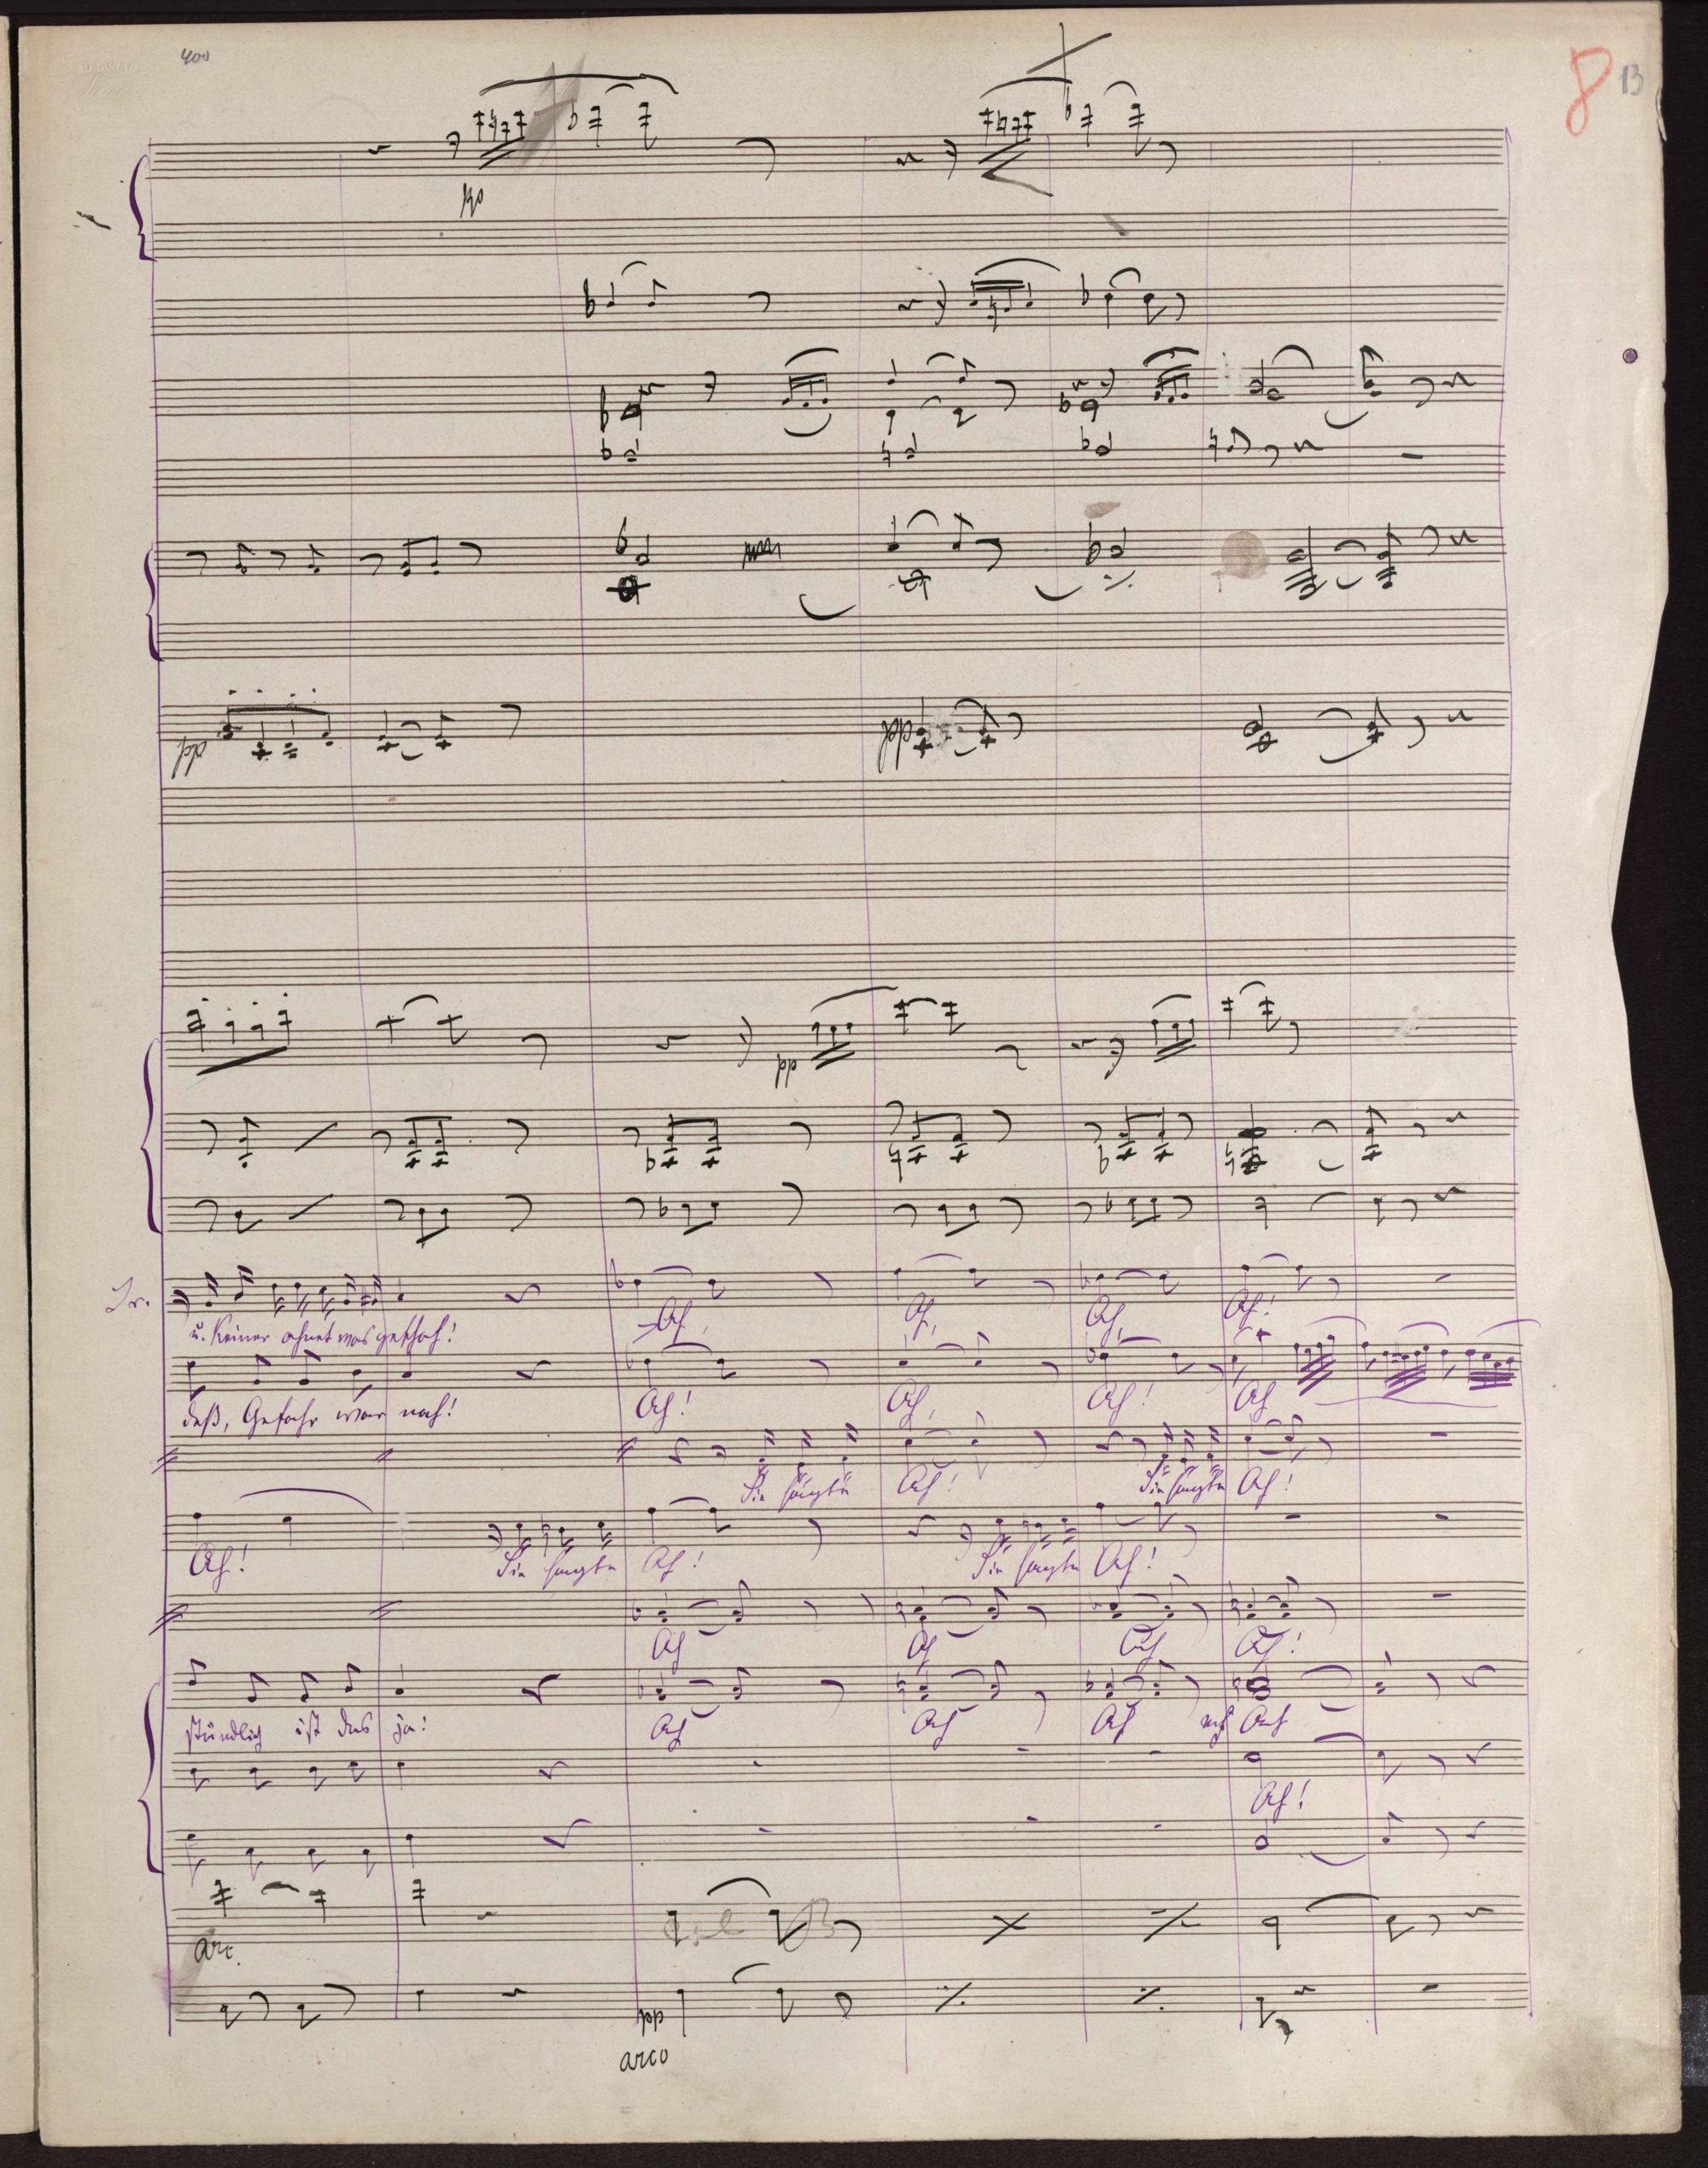 400
8 13
pp
pp
pp
pp
Ir.
u. Keiner ahnet was geschah!
Ach, Ach, Ach, Ach!
deß, Gefahr war nah!
Ach! Ach, Ach! Ach
Sie sagte Ach! Sie sagte Ach!
Ach! Sie sagte Ach! Sie sagte Ach!
Ach Ach Ach Ach!
stündlich ist das ja!
Ach Ach Ach Ach
Ach!
arc.
pp
arco